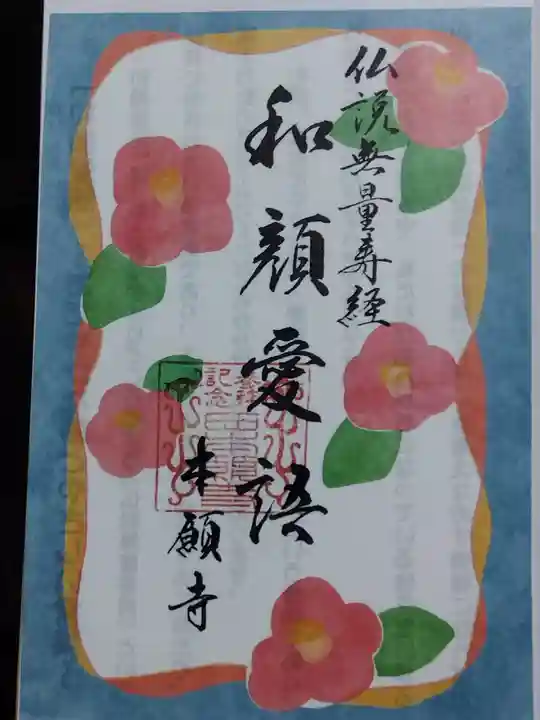 仏説無量寿経
和顔愛語
本願寺
参拝
記念